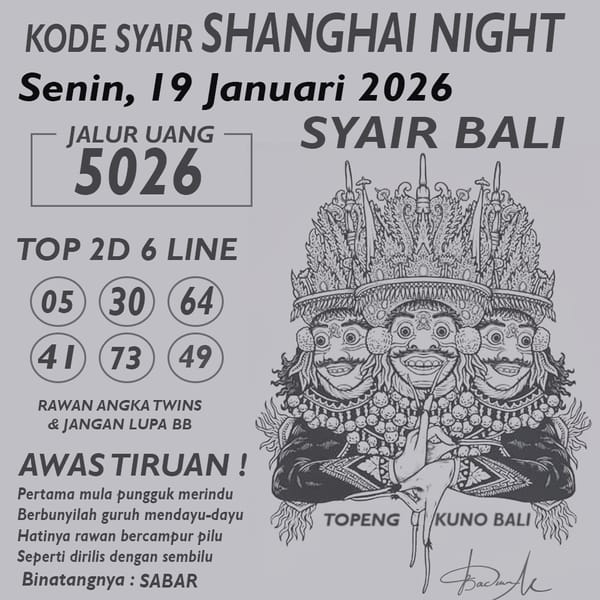 KODE SYAIR SHANGHAI NIGHT
Senin, 19 Januari 2026
JALUR UANG
5026
SYAIR BALI
TOP 2D 6 LINE
05 30 64
41 73 49
RAWAN ANGKA TWINS
& JANGAN LUPA BB
AWAS TIRUAN !
Pertama mula pungguk merindu
Berbunyilah guruh mendayu-dayu
Hatinya rawan bercampur pilu
Seperti dirilis dengan sembilu
Binatangnya : SABAR
TOPENG KUNO BALI